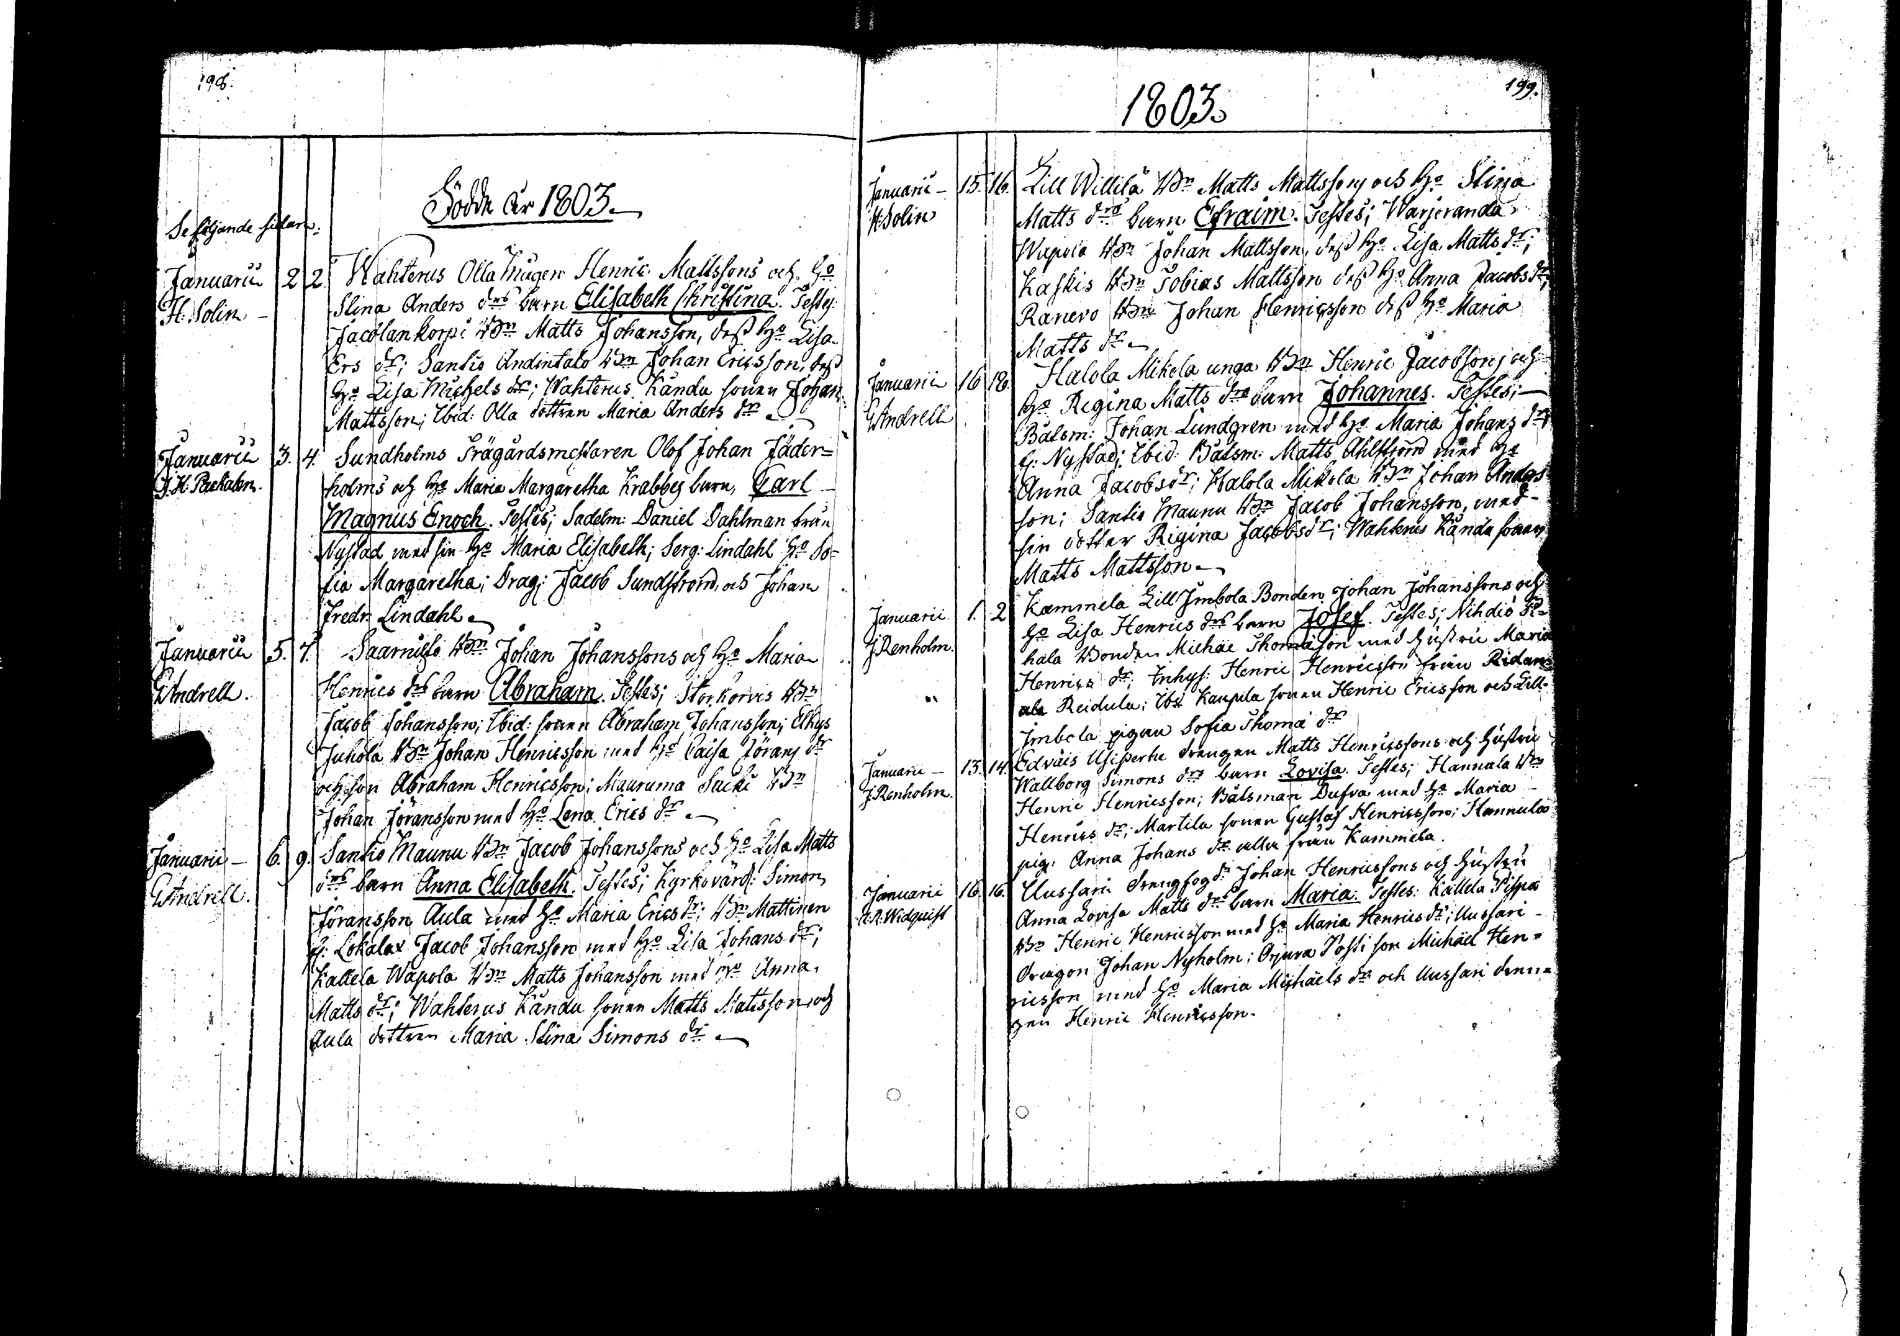 198.
Födde År 1803.
Se följande sidan:
Januarii 2 2. Wahterus Olla Mågen Henric Mattssons och Ho
H. Solin Stina Anders drs barn Elisabeth Christina. Testes;
Jacolankorpi Bdn Matts Johansson, dess Ho Lisa
Ers dr; Santio Andintalo Bdn Johan Ericsson, dess
Ho Lisa Michels dr; Wahterus Kändu sonen Johan
Mattsson; Ibid: Olla dottren Maria Anders dr
Januarii 3. 4. Sundholms Trägårdsmestaren Olof Johan Jäder=
holms och Ho Maria Margaretha Krabbes barn, Carl
Magnus Enoch. Testes; Sadelm: Daniel Dahlman från
Nystad med sin Ho Maria Elisabeth; Serg: Lindahl Ho So=
fia Margaretha; Drag: Jacob Sundström, och Johan
Fredr. Lindahl.
Januarii 5. 7. Saarnisto Bdn Johan Johanssons och Ho Maria
G Andrell. Henrics drs barn Abraham. Testes; Storkorvis Bdn
Jacob Johansson; Ibid: sonen Abraham Johansson; Elkys
Juhola Bdn Johan Henricsson med Ho Caisa Jörans dr
och son Abraham Henricsson; Mauruma Sucki Bdn
Johan Jöransson med Ho Lena Erics dr.
Januarii 6. 9. Santio Maunu Bdn Jacob Johanssons och Ho Lisa Matts
G Andrell. drs barn Anna Elisabeth. Testes; Kyrkovärd: Simon
Jöransson Aula med Ho Maria Erics dr; Bdn Mattinen
fr: Lokalax Jacob Johansson med Ho Lisa Johans dr;
Kallela Wapola Bdn Matts Johansson med Ho Anna
Matts dr; Wahterus Kändu sonen Matts Mattsson och
Aula dottren Maria Stina Simons dr
199.
1803.
Januarii 15. 16. Lill Willilä Bdn Matts Mattssons och Ho Stina
H Solin Matts drs barn Efraim. Testes; Warjeranda
Wapola Bdn Johan Mattsson, dess Ho Lisa Matts dr;
Kaskis Bdn Tobias Mattsson dess Ho Anna Jacobs dr;
Ranevo Bdn Johan Henricsson dess Ho Maria
Matts dr
Januarii 16 18. Halola Mikola unga Bdn Henric Jacobssons och
G Andrell Ho Regina Matts drs barn Johannes. Testes;
Båtsm: Johan Lundgren med Ho Maria Johans dr
fr: Nystad; Ibid: Båtsm: Matts Ahlström med Ho
Anna Jacobs dr; Halola Mikola Bdn Johan Anders
son; Santio Maunu Bdn Jacob Johansson, med
sin dotter Rigina Jacobs dr; Wahterus Kändu sonen
Matts Mattsson
Januarii 1. 2 Kammela Lill Jmbola Bonden Johan Johanssons och
J Renholm. Ho Lisa Henrics drs barn Josef. Testes; Nihdiö R=
hala Bonden Michäe Thomasson med hustru Maria
Henrics dr; Inhys: Henric Henricsson från
Reidula; Kaupila sonen Henric Ericsson och Lill=
Jmbola pigan Sofia Thoma dr
Januarii 13. 14. Edväis drengen Matts Henricssons och hustru
J Renholm. Wallborg Simons drs barn Lovisa. Testes; Hannula Bdn
Henric Henricsson; Båtsman Dufva med Ho Maria
Henrics dr; Martila sonen Gustaf Henricsson; Hannula
pig: Anna Johans dr alla från Kammela.
Januarii 16. 16. Uussari drengfog dr Johan Henricssons och hustru
Widquist Anna Lovisa Matts drs barn Maria. Testes: Kallela Pispa
Bdn Henric Henricsson med Ho Maria Henrics dr; Uussari
dragon Johan Nyholm; Orjura Possi son Michäel Hen=
ricsson med Ho Maria Michaels dr och Uussari dren=
gen Henric Henricsson.